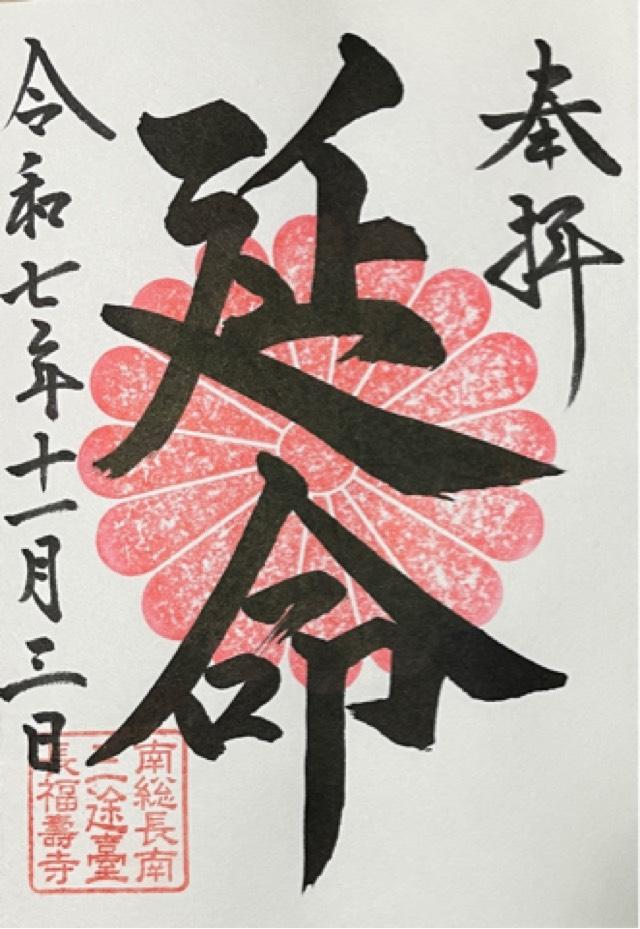 奉拝
延命
令和七年十一月三日
南総長南
三途臺
長福壽寺